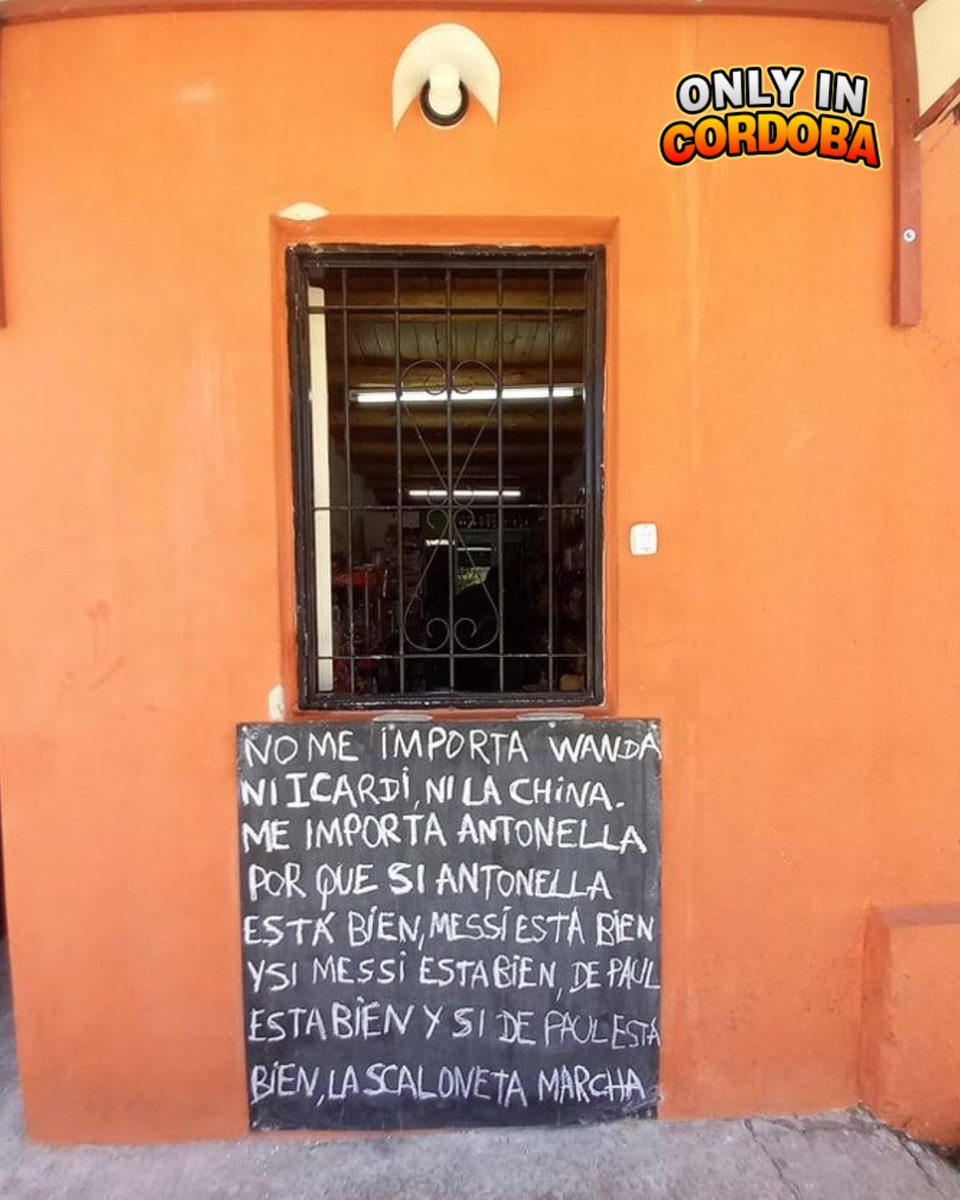 ONLY IN
CORDOBA
NO ME IMPORTA WANDA
NI ICARDI, NI LA CHINA.
ME IMPORTA ANTONELLA
POR QUE SI ANTONELLA
ESTÁ BIEN, MESSI ESTÁ BIEN
Y SI MESSI ESTA BIEN, DE PAUL
ESTA BIEN Y SI DE PAUL ESTÁ
BIEN, LA SCALONETA MARCHA